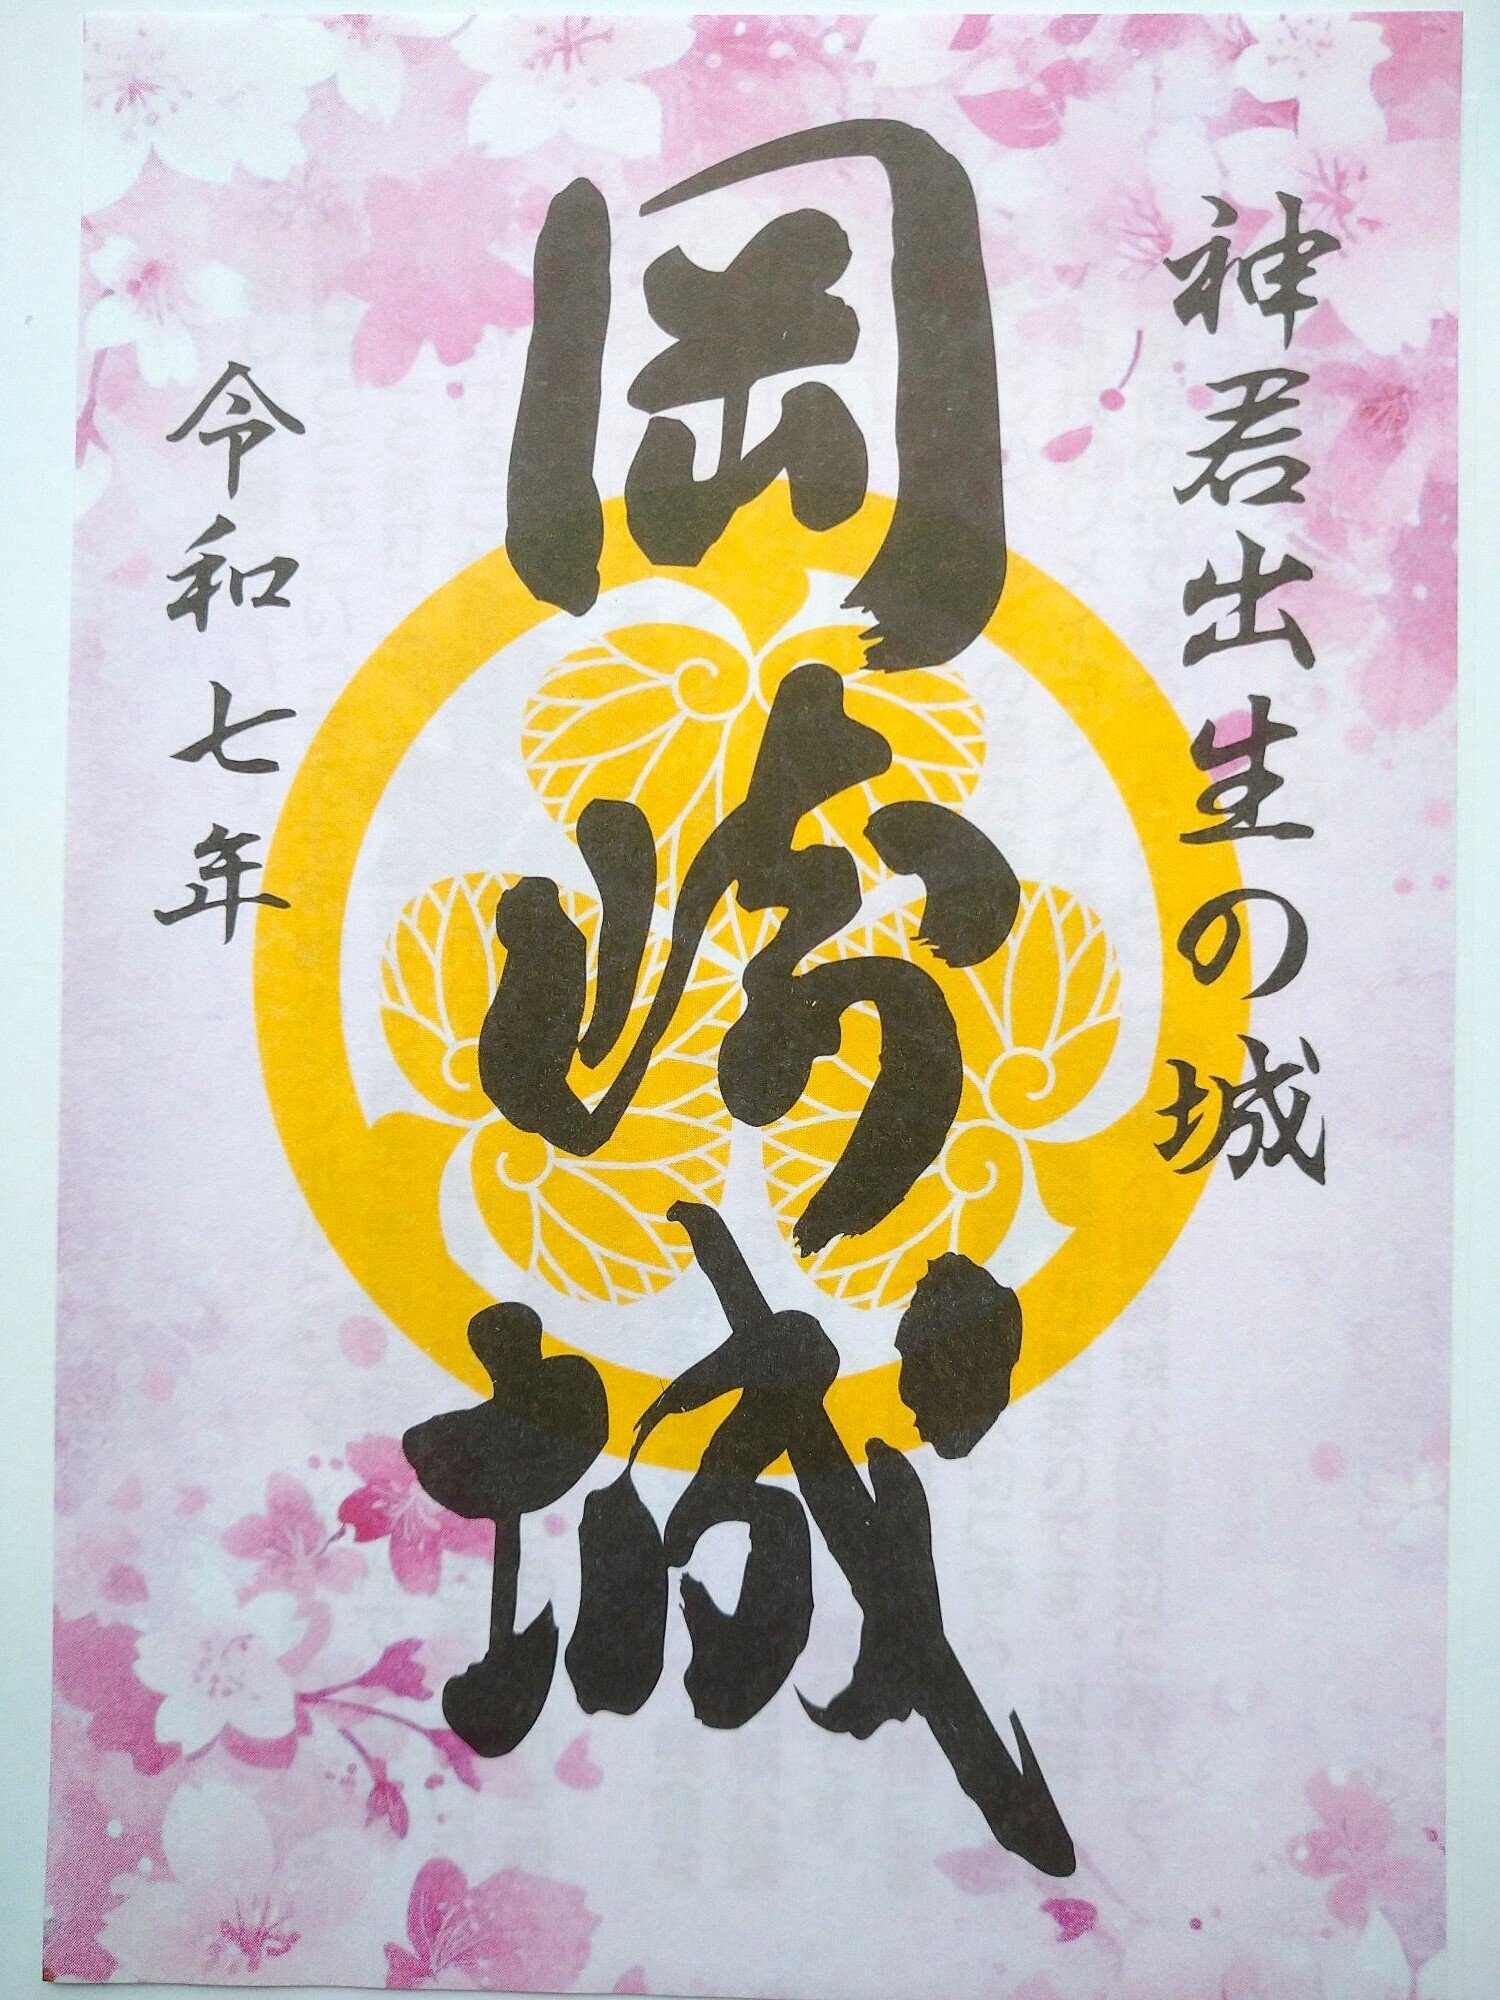 神君出生の城
岡崎城
令和七年